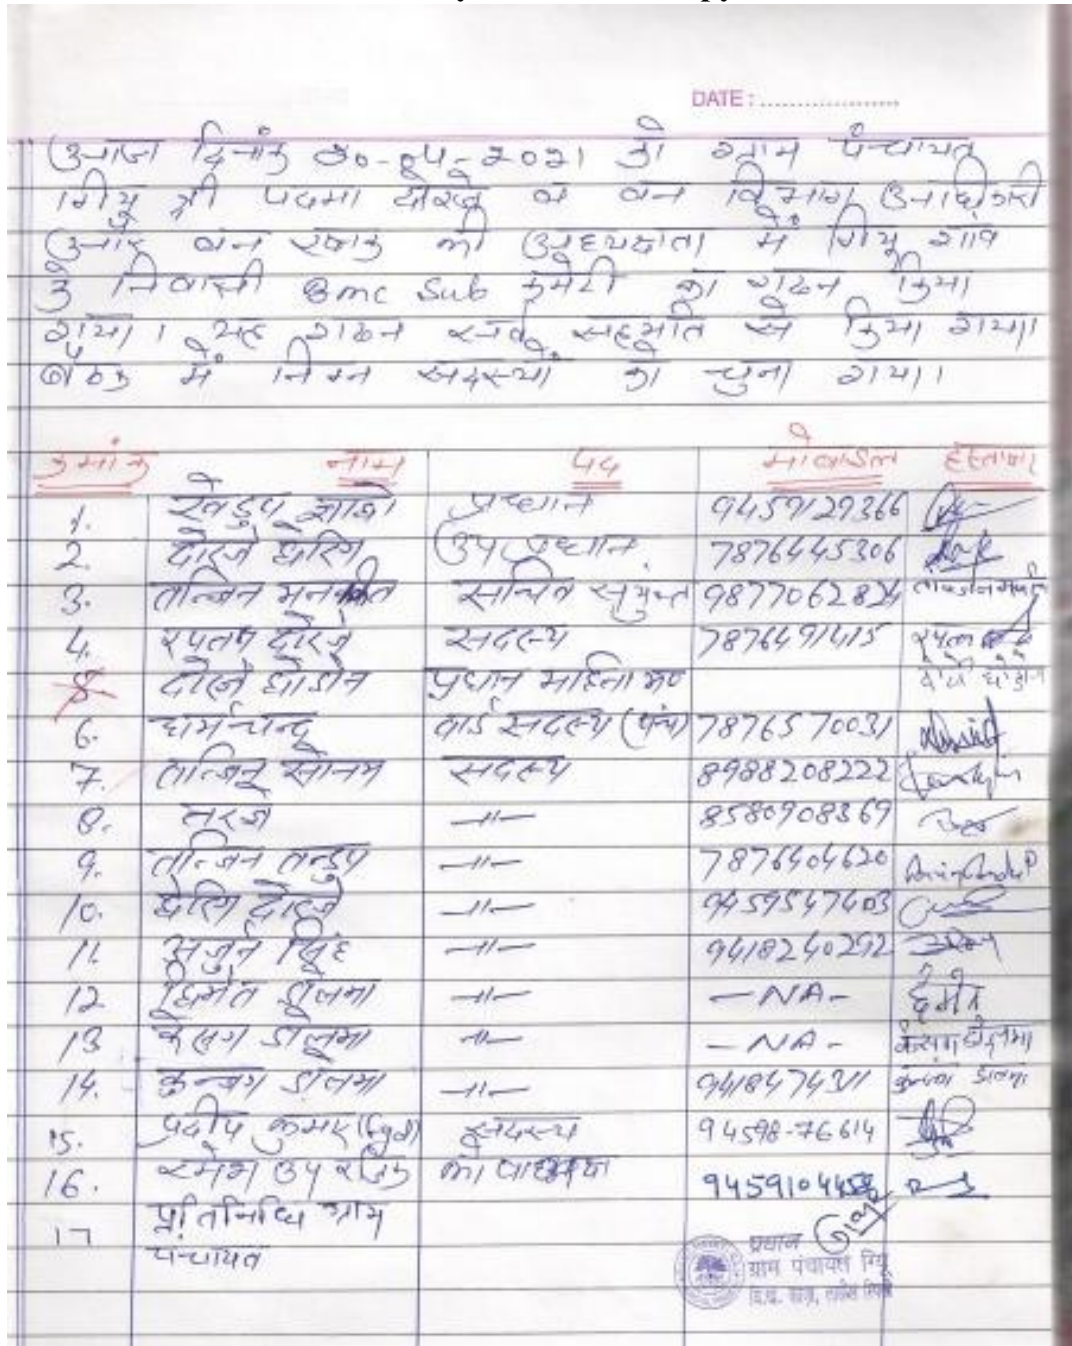 DATE : ....................
आज दिनांक 20-04-2021 को ग्राम पंचायत
गियु श्री पदमा दोरजे व वन विभाग अधिकारी
वन रक्षक की अध्यक्षता में गियू गांव
के निवासी Bmc Sub कमेटी का गठन किया
गया। यह गठन सर्व सहमति से किया गया।
बैठक में निम्न सदस्यों को चुना गया।
क्रमांक नाम पद मोबाईल हस्ताक्षर
1. प्रधान 9459129366
2. दोरजे छेरिंग उपप्रधान 7876445306
3. तन्जिन सचिव सयुंक्त 9877062824
4. रपतन दोरजे सदस्य 7876491415 रपतन
5 दोरजे छोडोन प्रधान महिला
6. धर्मचन्द वार्ड सदस्य (पंच) 7876570031
7. तन्जिन सोनम सदस्य 8988208222
8. —॥— 8580908369
9. तन्जिन तन्डुप —॥— 7876404620
10. छेरिंग दोरजे —॥— 9459547403
11. अर्जुन सिंह —॥— 9418240292
12 छिमेत डोलमा —॥— —NA—
13 केसंग डोलमा —॥— —NA— केसंग डोलमा
14. कुन्जंग डोलमा —॥— 941847431 डोलमा
15. प्रदीप कुमार सदस्य 94598-76614
16. रमेश उप कोषाध्यक्ष
17 प्रतिनिधि ग्राम
पंचायत
प्रधान
ग्राम पंचायत गियू